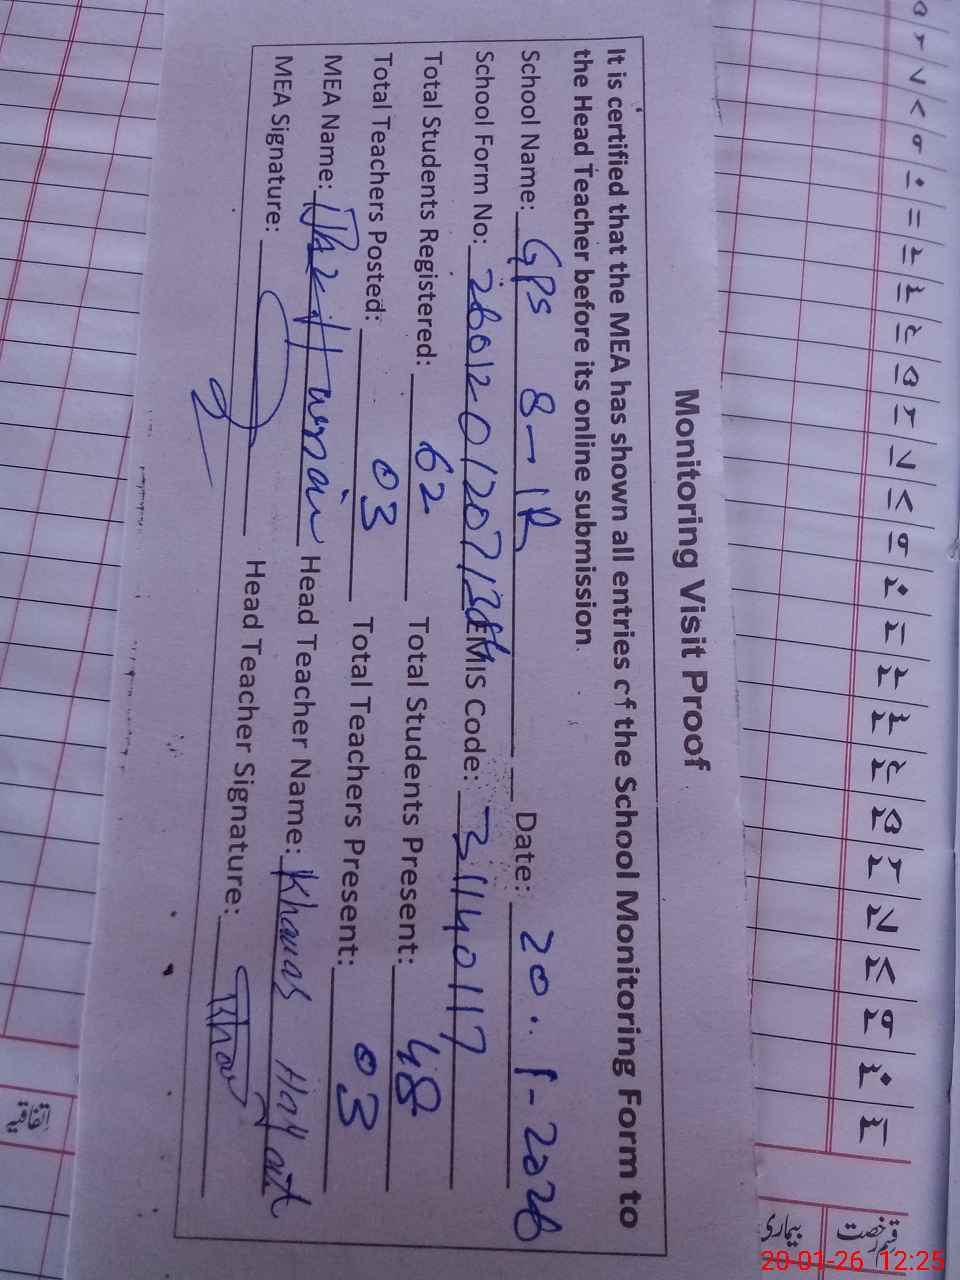 Monitoring Visit Proof
It is certified that the MEA has shown all entries of the School Monitoring Form to
the Head Teacher before its online submission.
School Name: GPS 8-1R Date: 20.1-2026
School Form No: EMIS Code: 31140117
Total Students Registered: 62 Total Students Present: 48
Total Teachers Posted: 03 Total Teachers Present: 03
MEA Name: Head Teacher Name: Khawas Hayat
MEA Signature: Head Teacher Signature:
۵ ۶ ۷ ۸ ۹ ۱۰ ۱۱ ۱۲ ۱۳ ۱۴ ۱۵ ۱۶ ۱۷ ۱۸ ۱۹ ۲۰ ۲۱ ۲۲ ۲۳ ۲۴ ۲۵ ۲۶ ۲۷ ۲۸ ۲۹ ۳۰ ۳۱
قسم رخصت
بیماری
اتفاقیہ
20-01-26 12:25